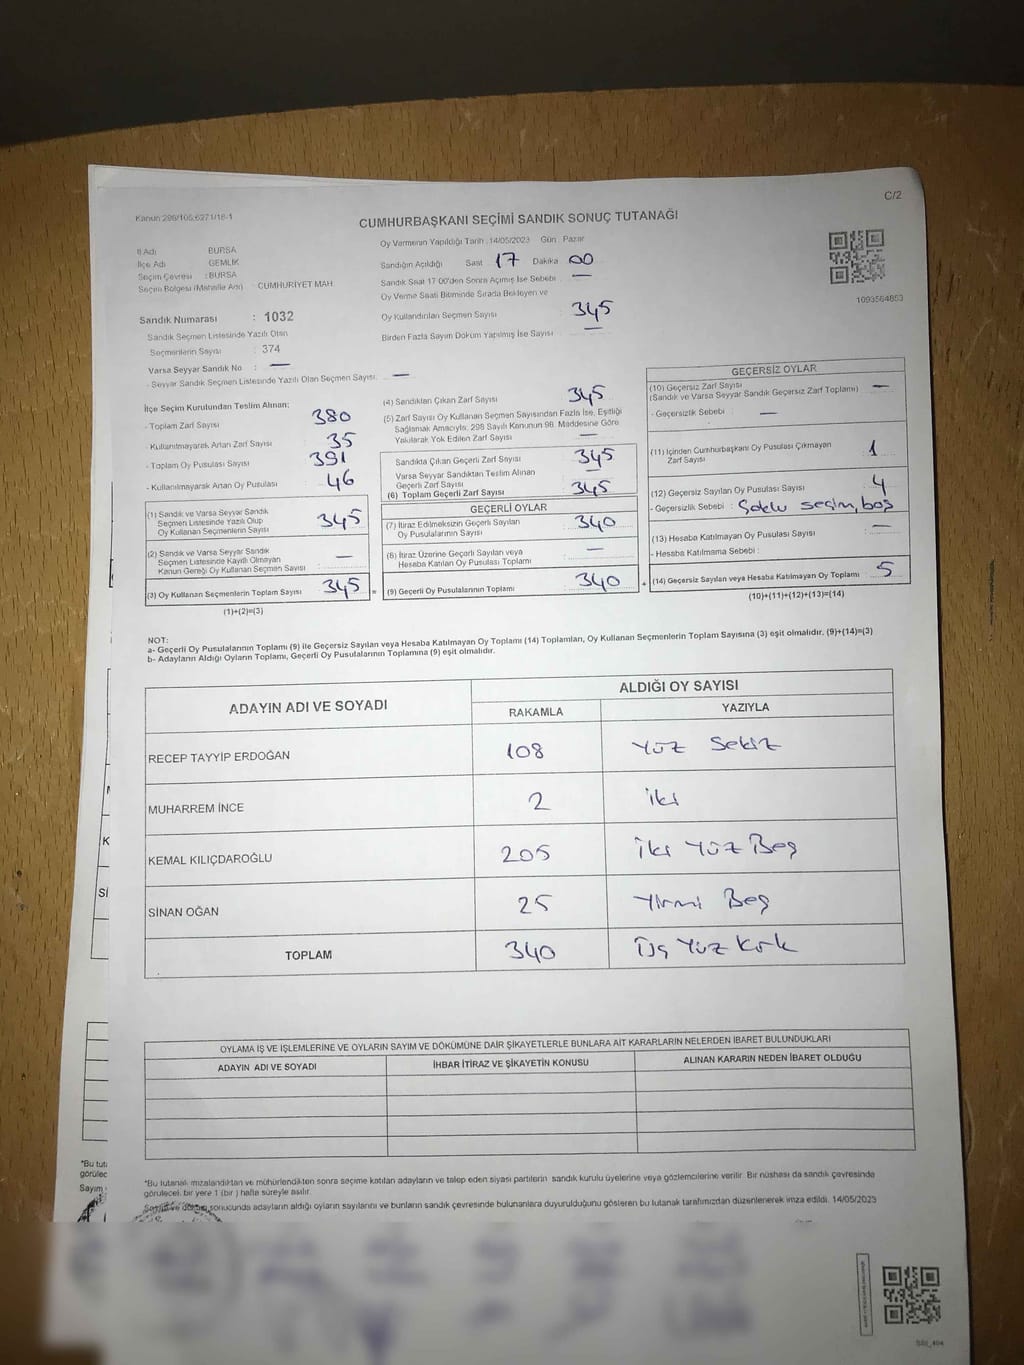 C/2
Kanun 298/105;6271/18-1
CUMHURBAŞKANI SEÇİMİ SANDIK SONUÇ TUTANAĞI
Oy Vermenin Yapıldığı Tarih :14/05/2023 Gün : Pazar
İl Adı : BURSA
İlçe Adı : GEMLİK
Seçim Çevresi : BURSA
Seçim Bölgesi (Mahalle Adı) : CUMHURİYET MAH
Sandık Numarası : 1032
Sandık Seçmen Listesinde Yazılı Olan
Seçmenlerin Sayısı : 374
Varsa Seyyar Sandık No : —
- Seyyar Sandık Seçmen Listesinde Yazılı Olan Seçmen Sayısı: —
Sandığın Açıldığı Saat 17 Dakika 00
Sandık Saat 17:00'den Sonra Açılmış İse Sebebi : —
Oy Verme Saati Bitiminde Sırada Bekleyen ve
Oy Kullandırılan Seçmen Sayısı : 345
Birden Fazla Sayım Döküm Yapılmış İse Sayısı : —
1093564853
İlçe Seçim Kurulundan Teslim Alınan:
- Toplam Zarf Sayısı : 380
- Kullanılmayarak Artan Zarf Sayısı : 35
- Toplam Oy Pusulası Sayısı : 391
- Kullanılmayarak Artan Oy Pusulası : 46
(1) Sandık ve Varsa Seyyar Sandık
Seçmen Listesinde Yazılı Olup
Oy Kullanan Seçmenlerin Sayısı : 345
(2) Sandık ve Varsa Seyyar Sandık
Seçmen Listesinde Kayıtlı Olmayan
Kanun Gereği Oy Kullanan Seçmen Sayısı : —
(3) Oy Kullanan Seçmenlerin Toplam Sayısı : 345
(1)+(2)=(3)
(4) Sandıktan Çıkan Zarf Sayısı : 345
(5) Zarf Sayısı Oy Kullanan Seçmen Sayısından Fazla İse, Eşitliği
Sağlamak Amacıyla, 298 Sayılı Kanunun 98. Maddesine Göre
Yakılarak Yok Edilen Zarf Sayısı : —
Sandıkta Çıkan Geçerli Zarf Sayısı : 345
Varsa Seyyar Sandıktan Teslim Alınan
Geçerli Zarf Sayısı :
(6) Toplam Geçerli Zarf Sayısı : 345
GEÇERLİ OYLAR
(7) İtiraz Edilmeksizin Geçerli Sayılan
Oy Pusulalarının Sayısı : 340
(8) İtiraz Üzerine Geçerli Sayılan veya
Hesaba Katılan Oy Pusulası Toplamı : —
= (9) Geçerli Oy Pusulalarının Toplamı : 340
GEÇERSİZ OYLAR
(10) Geçersiz Zarf Sayısı
(Sandık ve Varsa Seyyar Sandık Geçersiz Zarf Toplamı) : —
- Geçersizlik Sebebi : —
(11) İçinden Cumhurbaşkanı Oy Pusulası Çıkmayan
Zarf Sayısı : 1
(12) Geçersiz Sayılan Oy Pusulası Sayısı : 4
- Geçersizlik Sebebi : Çoklu seçim, boş
(13) Hesaba Katılmayan Oy Pusulası Sayısı : —
- Hesaba Katılmama Sebebi :
+ (14) Geçersiz Sayılan veya Hesaba Katılmayan Oy Toplamı : 5
(10)+(11)+(12)+(13)=(14)
NOT:
a- Geçerli Oy Pusulalarının Toplamı (9) ile Geçersiz Sayılan veya Hesaba Katılmayan Oy Toplamı (14) Toplamları, Oy Kullanan Seçmenlerin Toplam Sayısına (3) eşit olmalıdır. (9)+(14)=(3)
b- Adayların Aldığı Oyların Toplamı, Geçerli Oy Pusulalarının Toplamına (9) eşit olmalıdır.
ADAYIN ADI VE SOYADI ALDIĞI OY SAYISI
RAKAMLA YAZIYLA
RECEP TAYYİP ERDOĞAN 108 Yüz Sekiz
MUHARREM İNCE 2 iki
KEMAL KILIÇDAROĞLU 205 iki Yüz Beş
SİNAN OĞAN 25 Yirmi Beş
TOPLAM 340 Üç Yüz Kırk
OYLAMA İŞ VE İŞLEMLERİNE VE OYLARIN SAYIM VE DÖKÜMÜNE DAİR ŞİKAYETLERLE BUNLARA AİT KARARLARIN NELERDEN İBARET BULUNDUKLARI
ADAYIN ADI VE SOYADI İHBAR İTİRAZ VE ŞİKAYETİN KONUSU ALINAN KARARIN NEDEN İBARET OLDUĞU
*Bu tutanak, imzalandıktan ve mühürlendikten sonra seçime katılan adayların ve talep eden siyasi partilerin sandık kurulu üyelerine veya gözlemcilerine verilir. Bir nüshası da sandık çevresinde
görülecek bir yere 1 (bir ) hafta süreyle asılır.
Sayım ve döküm sonucunda adayların aldığı oyların sayılarını ve bunların sandık çevresinde bulunanlara duyurulduğunu gösteren bu tutanak tarafımızdan düzenlenerek imza edildi. 14/05/2023